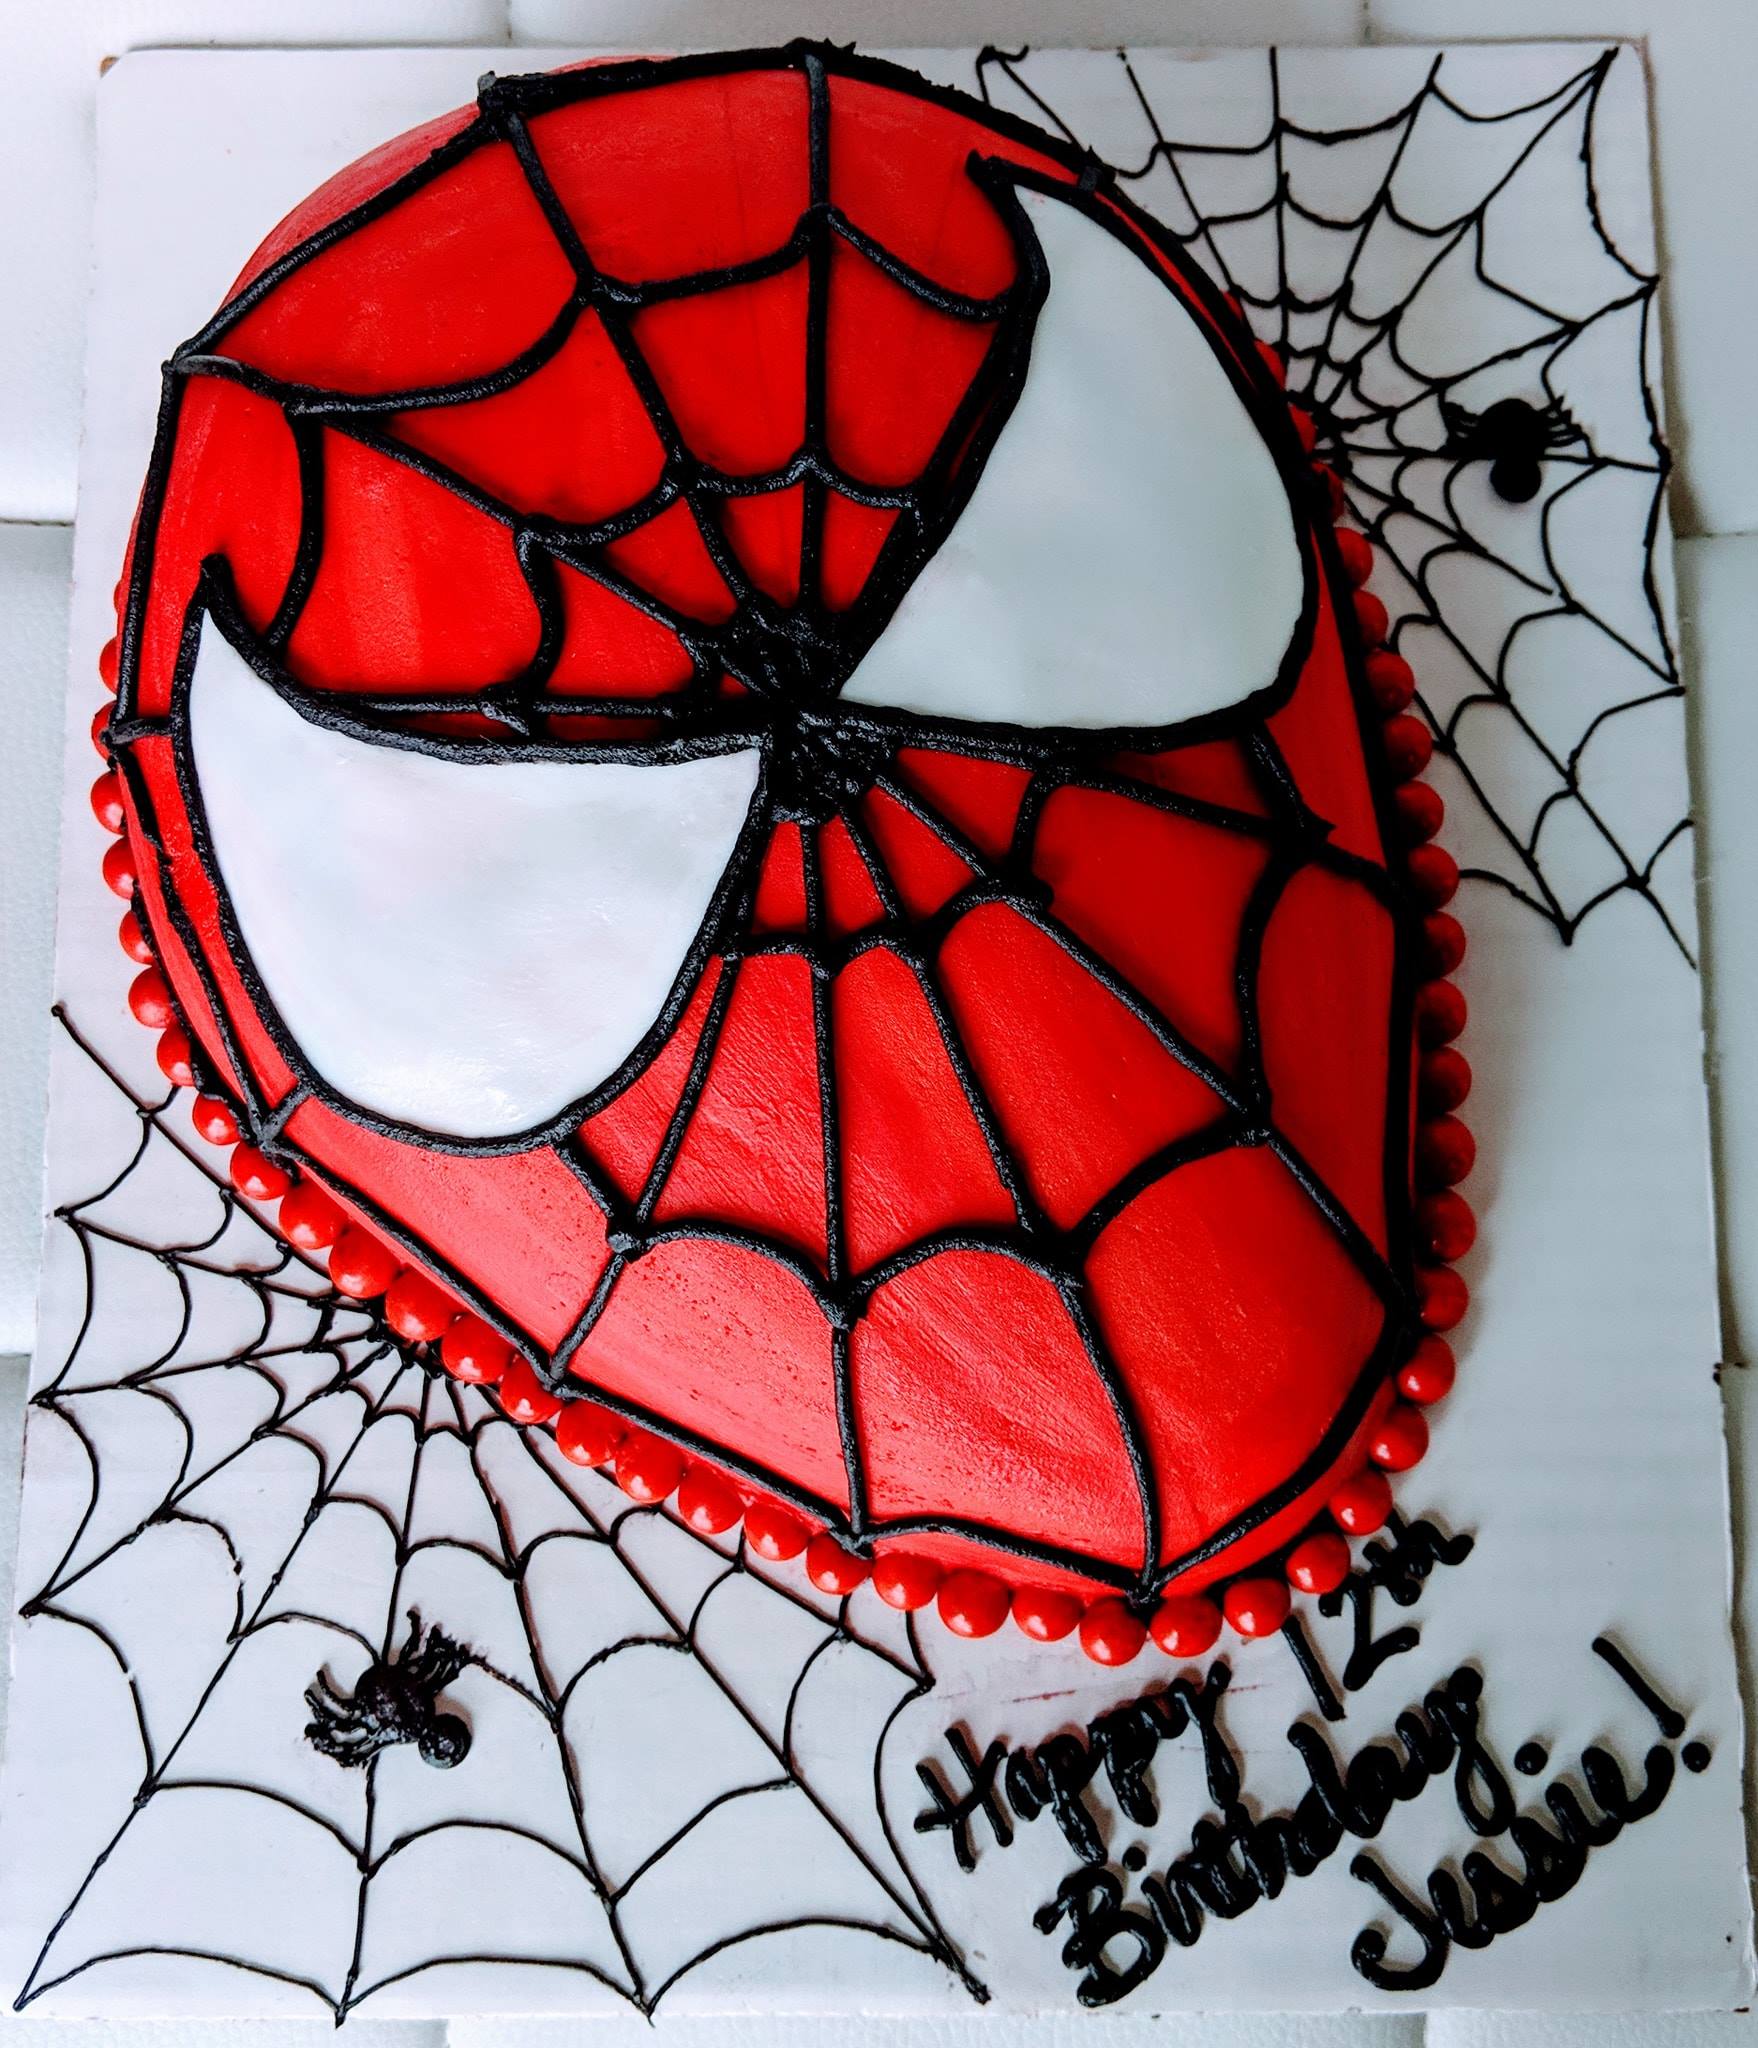 Happy 12th
Birthday.
Jessie!